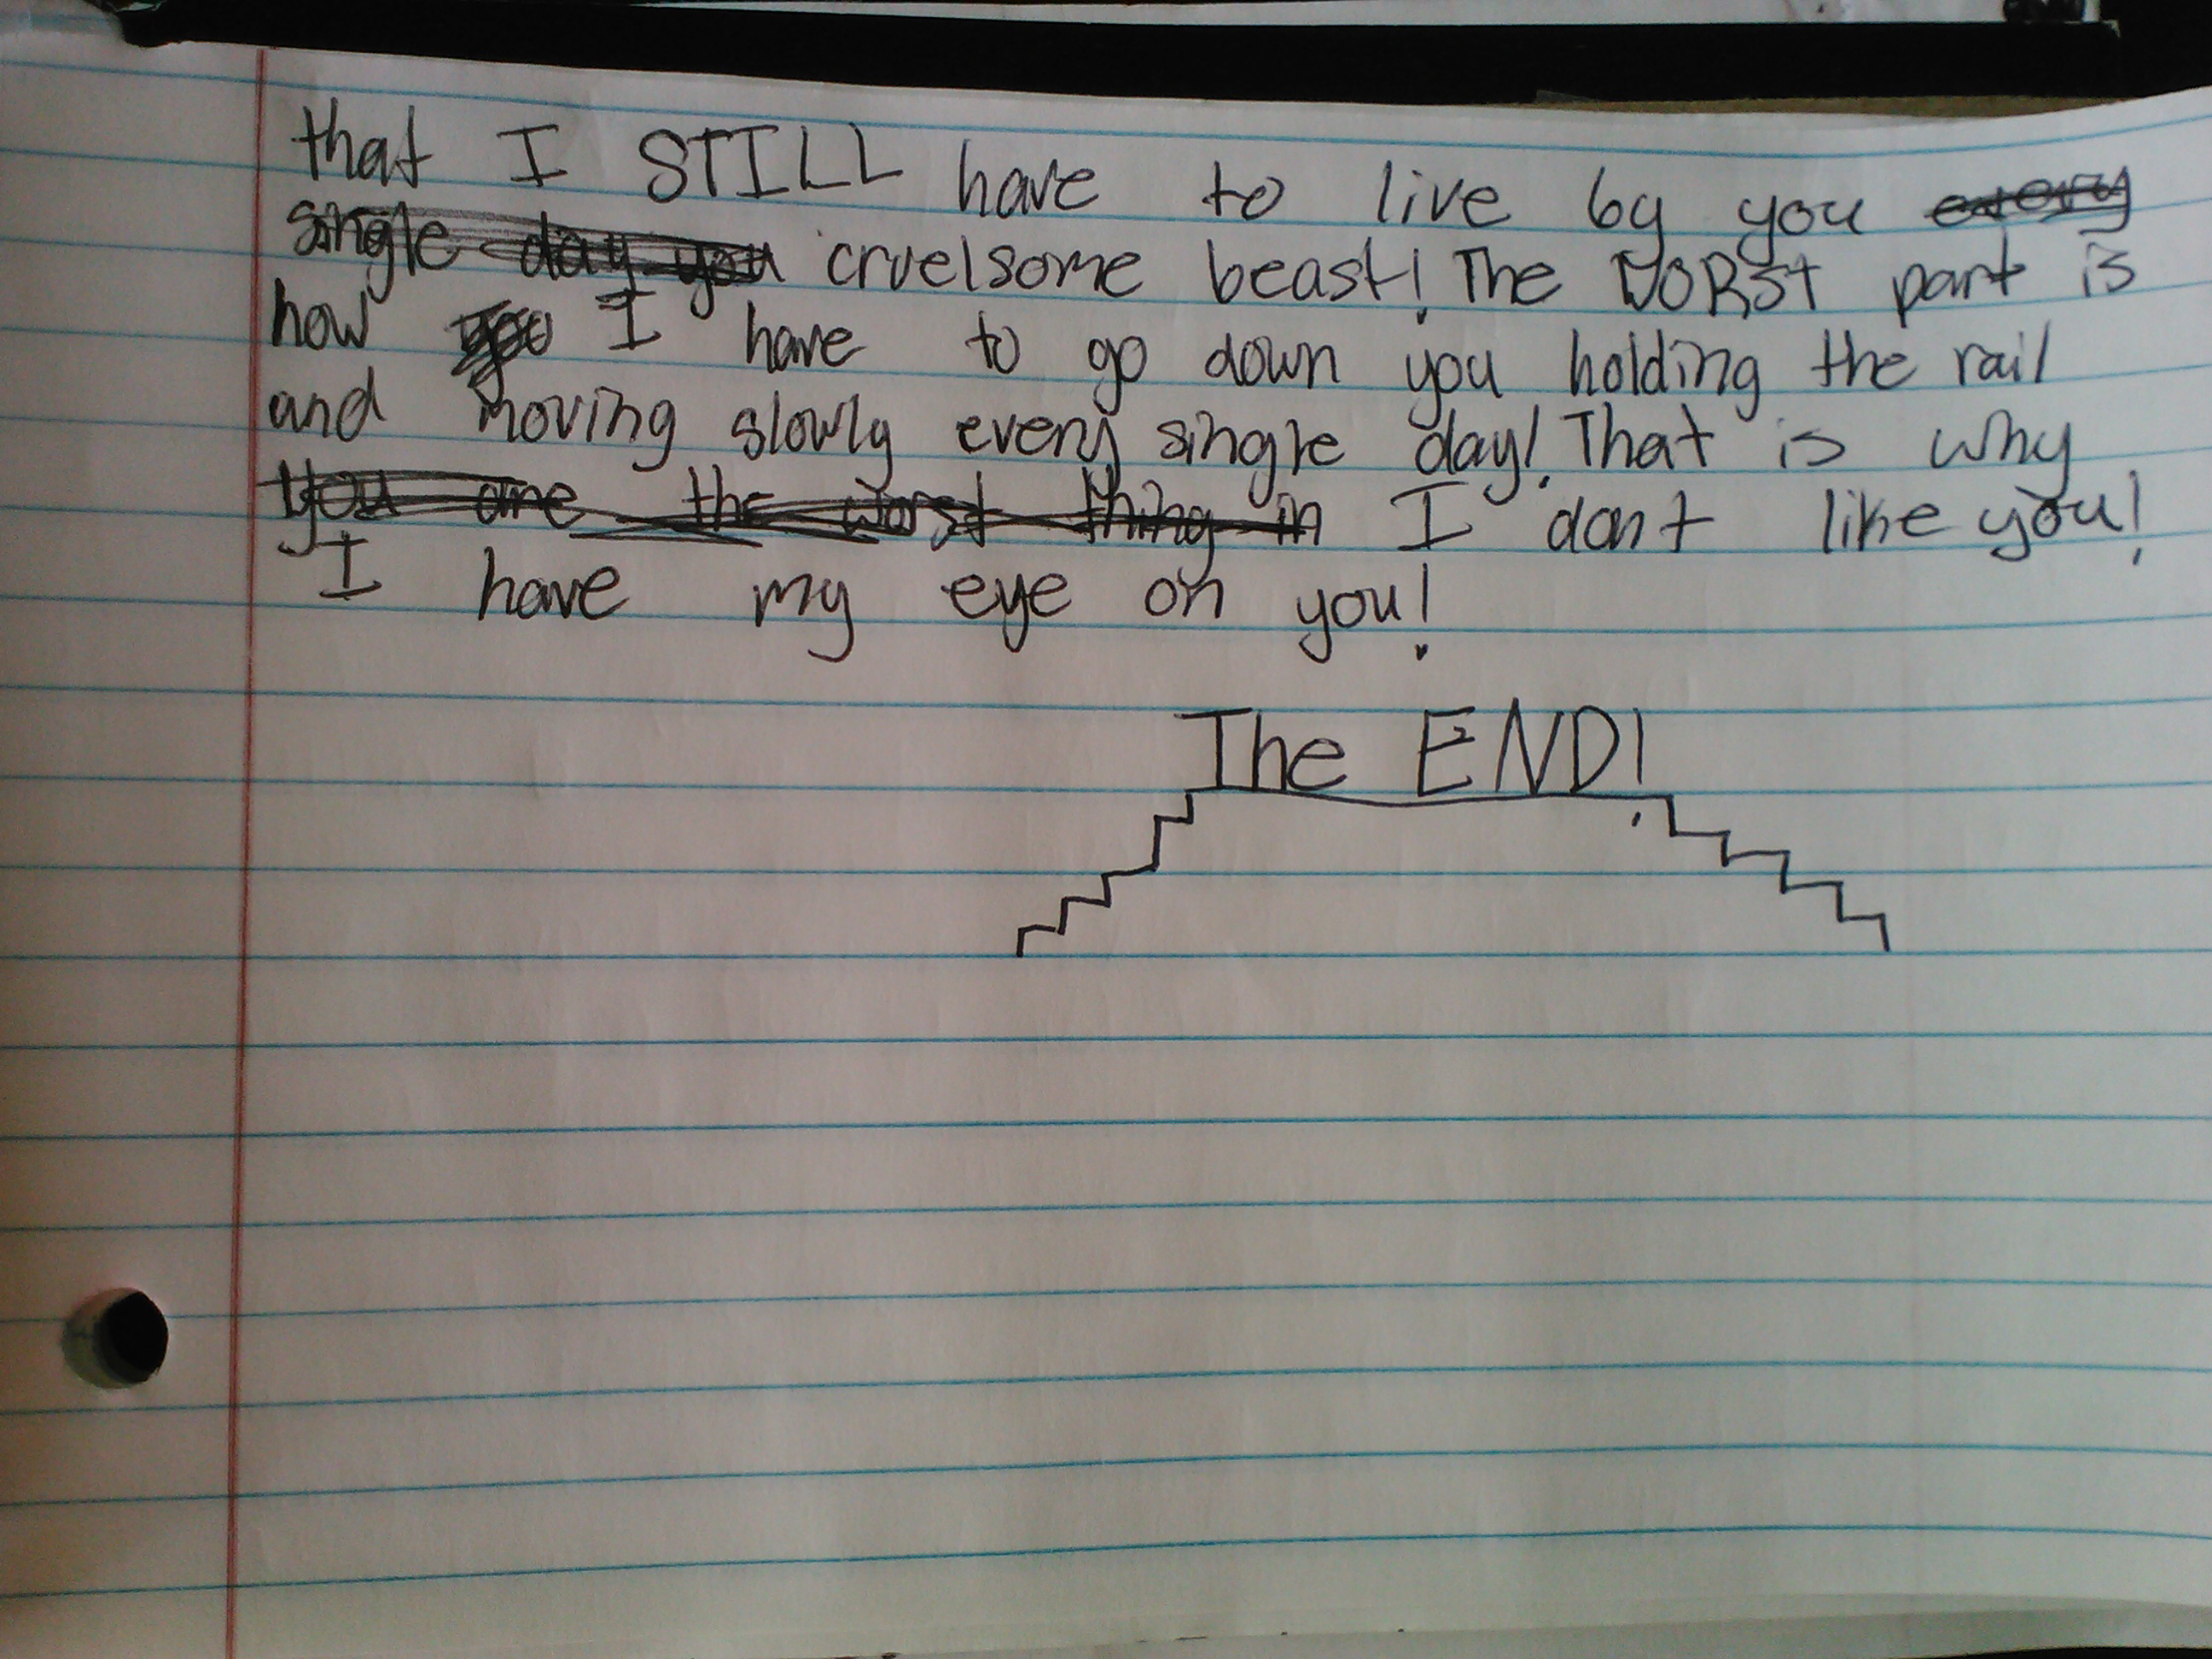 that I STILL have to live by you every
single day you cruelsome beast! The WORST part is
how you I have to go down you holding the rail
and moving slowly every single day! That is why
you are the worst thing in I dont like you!
I have my eye on you!
The END!